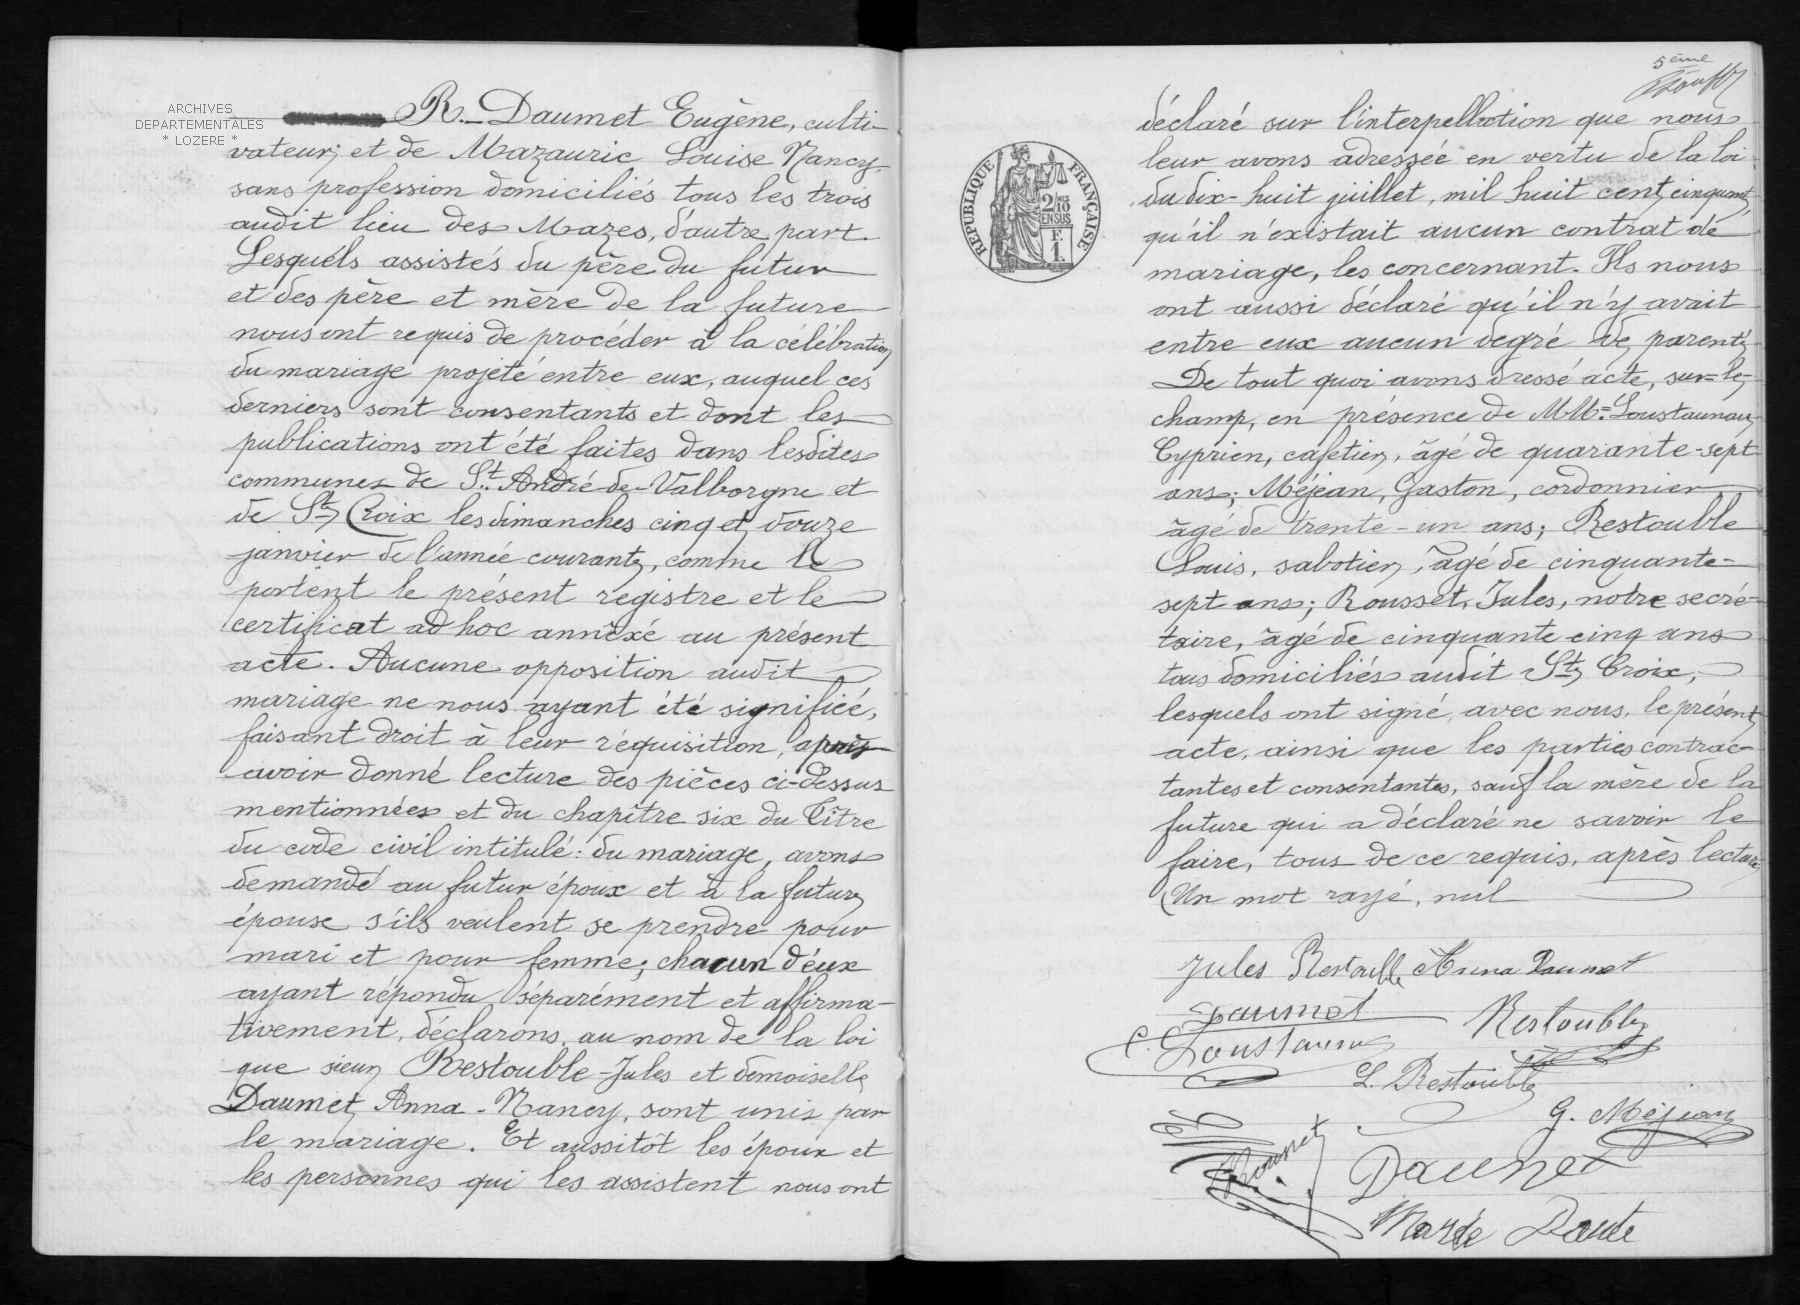 ARCHIVES
DEPARTEMENTALES
* LOZERE *
R. Daumet Eugène, culti-
vateur; et de Mazauric Louise Nancy
sans profession domiciliés tous les trois
audit lieu des Mazes, d'autre part.
Lesquels assistés du père du futur
et des père et mère de la future
nous ont requis de procéder à la célébration
du mariage projeté entre eux, auquel ces
derniers sont consentants et dont les
publications ont été faites dans lesdites
communes de St. André-de-Valborgne et
de Ste Croix les dimanches cinq et douze
janvier de l'année courante, comme le
portent le présent registre et le
certificat ad hoc annexé au présent
acte. Aucune opposition audit
mariage ne nous ayant été signifiée,
faisant droit à leur réquisition, après
avoir donné lecture des pièces ci-dessus
mentionnées et du chapitre six du Titre
du code civil intitulé: du mariage, avons
demandé au futur époux et à la future
épouse s'ils veulent se prendre pour
mari et pour femme; chacun d'eux
ayant répondu séparément et affirma-
tivement, déclarons, au nom de la loi
que sieur Restouble-Jules et demoiselle
Daumet Anna-Nancy, sont unis par
le mariage. Et aussitôt les époux et
les personnes qui les assistent nous ont
5ème
déclaré sur l'interpellation que nous
leur avons adressée en vertu de la loi
du dix-huit juillet, mil huit cent cinquante
qu'il n'existait aucun contrat de
mariage, les concernant. Ils nous
ont aussi déclaré qu'il n'y avait
entre eux aucun degré de parenté
De tout quoi avons dressé acte, sur-le-
champ, en présence de MM. Loustaunau
Cyprien, cafetier, âgé de quarante-sept
ans; Méjean, Gaston, cordonnier
âgé de trente-un ans; Restouble
Louis, sabotier, âgé de cinquante-
sept ans; Rousset, Jules, notre secré-
taire, âgé de cinquante cinq ans
tous domiciliés audit Ste Croix,
lesquels ont signé, avec nous, le présent
acte, ainsi que les parties contrac-
tantes et consentantes, sauf la mère de la
future qui a déclaré ne savoir le
faire, tous de ce requis, après lecture
Un mot rayé, nul
REPUBLIQUE FRANÇAISE
2/10 EN SUS
F. 1.
Jules Restouble Anna Daumet
Daumet
Restouble
C. Loustaunau
L. Restouble
G. Méjean
Rousset
Daumet